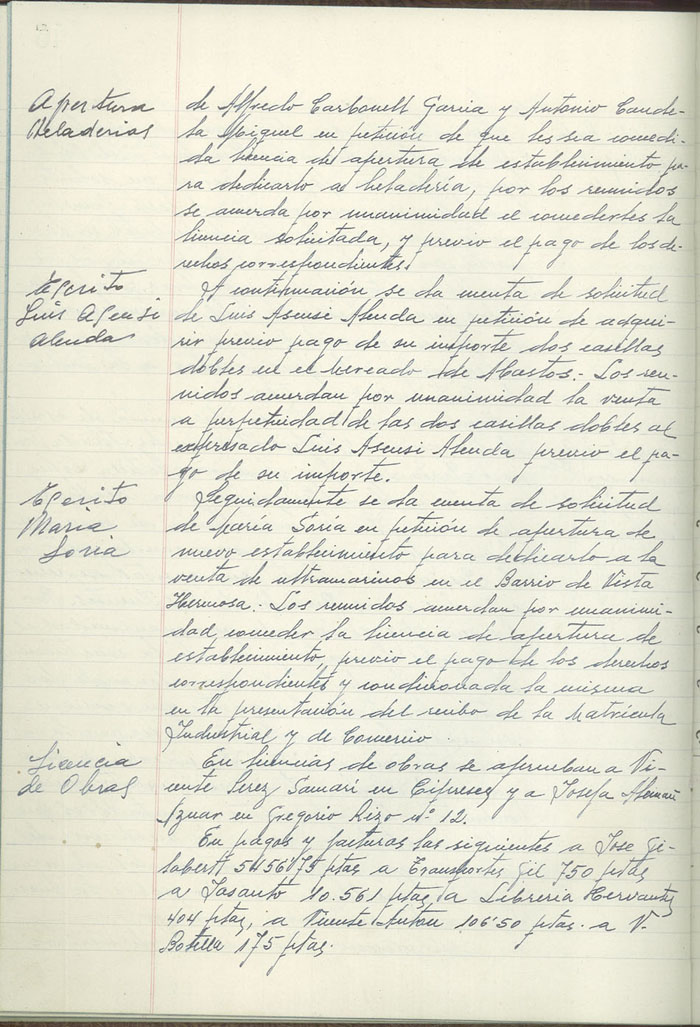 Apertura
Heladerias
de Alfredo Carbonell Garcia y Antonio Cande-
la Miguel en petición de que les sea concedi-
da licencia de apertura de establecimiento pa-
ra dedicarlo a heladería, por los reunidos
se acuerda por unanimidad el concederles la
licencia solicitada, y previo el pago de los de-
rechos correspondientes.
Escrito
Luis Asensi
Alenda
A continuación se da cuenta de solicitud
de Luis Asensi Alenda en petición de adqui-
rir previo pago de su importe dos casillas
dobles en el Mercado de Abastos.- Los reu-
nidos acuerdan por unanimidad la venta
a perpetuidad de las dos casillas dobles al
expresado Luis Asensi Alenda previo el pa-
go de su importe.
Escrito
Maria
Soria
Seguidamente se da cuenta de solicitud
de Maria Soria en petición de apertura de
nuevo establecimiento para dedicarlo a la
venta de ultramarinos en el Barrio de Vista
Hermosa.- Los reunidos acuerdan por unanimi-
dad, conceder la licencia de apertura de
establecimiento, previo el pago de los derechos
correspondientes y condicionada la misma
en la presentación del recibo de la Matrícula
Industrial y de Comercio.
Licencia
de Obras
En licencias de obras se aprueban a Vi-
cente en Cipreses y a Josefa Alemañ
Aznar en Gregorio Rizo nº 12.
En pagos y facturas las siguientes a Jose Gi-
labert 5456'75 ptas a Transportes Gil 750 ptas
a 10.561 ptas, a Libreria
404 ptas, a Vicente Antón 106'50 ptas. a V.
Botella 175 ptas.